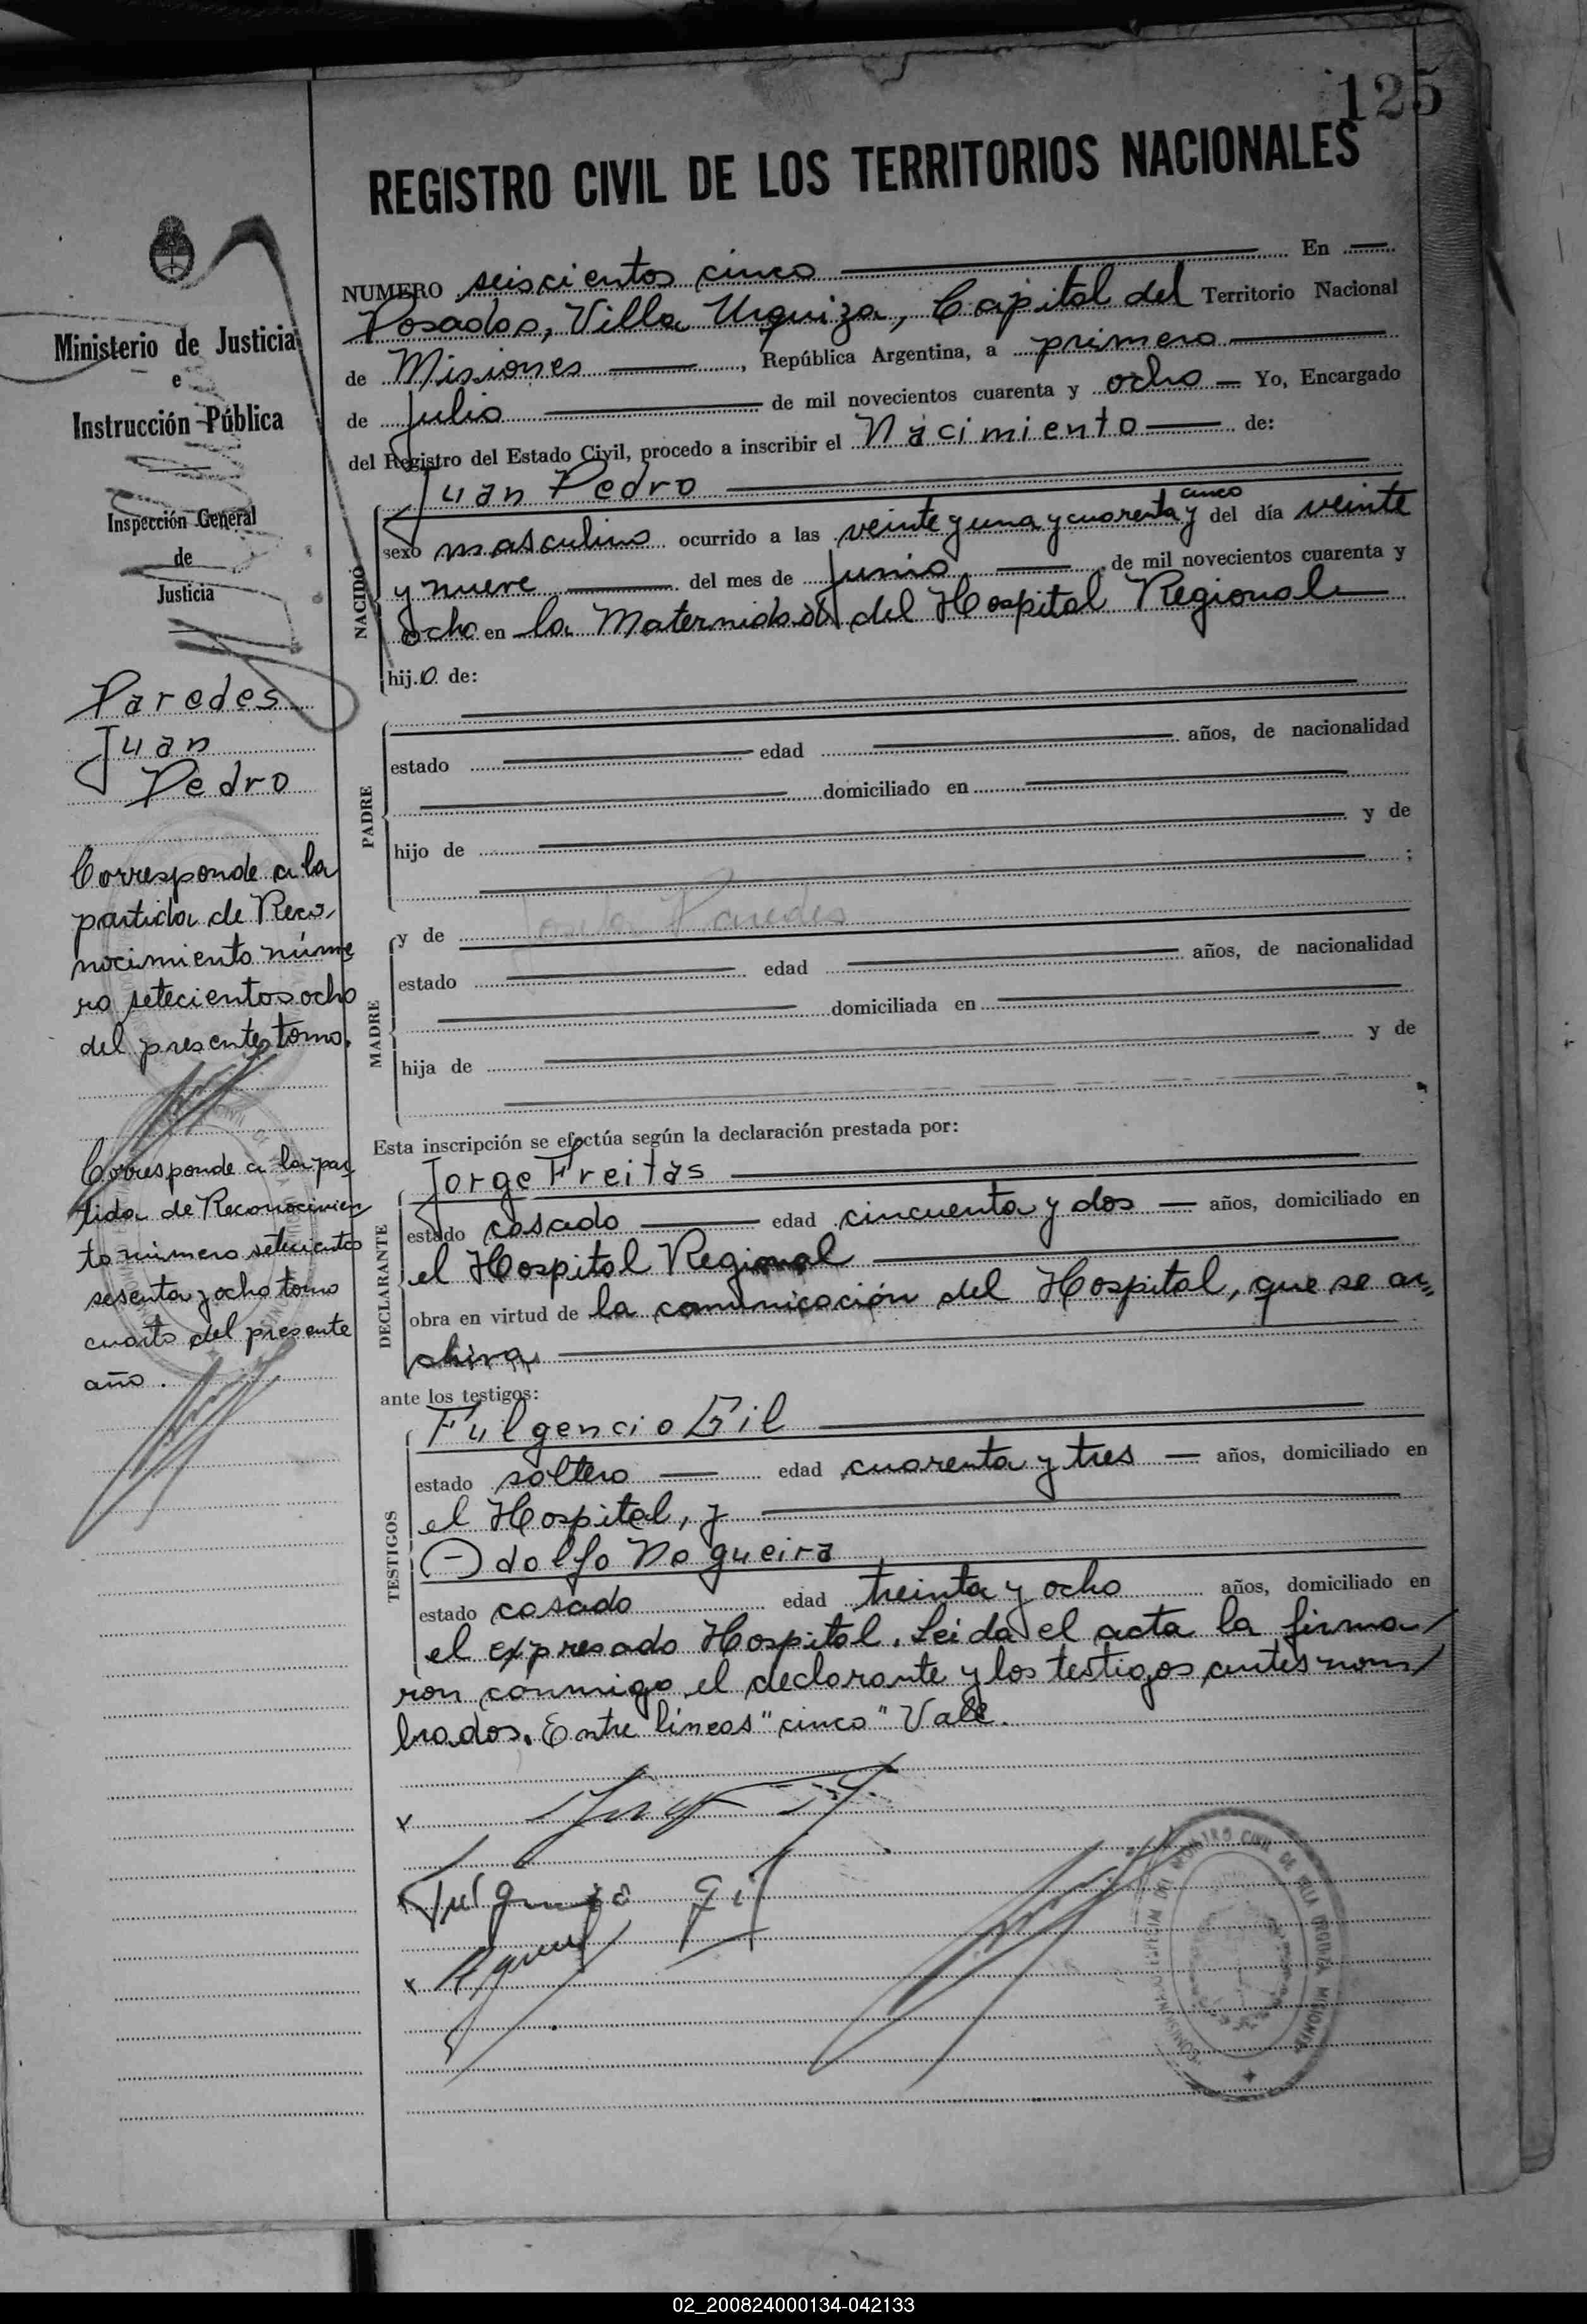 125
REGISTRO CIVIL DE LOS TERRITORIOS NACIONALES
NUMERO seiscientos cinco En
Posadas, Villa Urquiza, Capital del Territorio Nacional
de Misiones, República Argentina, a primero
de Julio de mil novecientos cuarenta y ocho Yo, Encargado
del Registro del Estado Civil, procedo a inscribir el Nacimiento de:
NACIDO
Juan Pedro
sexo masculino ocurrido a las veinte y una y cuarenta y cinco del día veinte
y nueve del mes de Junio de mil novecientos cuarenta y
ocho en la Maternidad del Hospital Regional
hijo de:
PADRE
estado edad años, de nacionalidad
domiciliado en
hijo de y de
;
MADRE
y de Paredes
estado edad años, de nacionalidad
domiciliada en
hija de y de
Esta inscripción se efectúa según la declaración prestada por:
DECLARANTE
Jorge Freitas
estado casado edad cincuenta y dos años, domiciliado en
el Hospital Regional
obra en virtud de la comunicación del Hospital, que se ar
chiva
ante los testigos:
TESTIGOS
Fulgencio Gil
estado soltero edad cuarenta y tres años, domiciliado en
el Hospital, y
Adolfo Nogueira
estado casado edad treinta y ocho años, domiciliado en
el expresado Hospital. Leida el acta la firma
ron conmigo el declarante y los testigos antes nom
brados. Entre líneas "cinco" Vale.
Fulgencio Gil
Ministerio de Justicia
e
Instrucción Pública
Inspección General
de
Justicia
Paredes
Juan
Pedro
Corresponde a la
partida de Reco
nocimiento núme
ro setecientos ocho
del presente tomo.
Corresponde a la par
tida de Reconocimien
to número setecientos
sesenta y ocho tomo
cuarto del presente
año.
REGISTRO CIVIL DE VILLA URQUIZA MISIONES
02_200824000134-042133